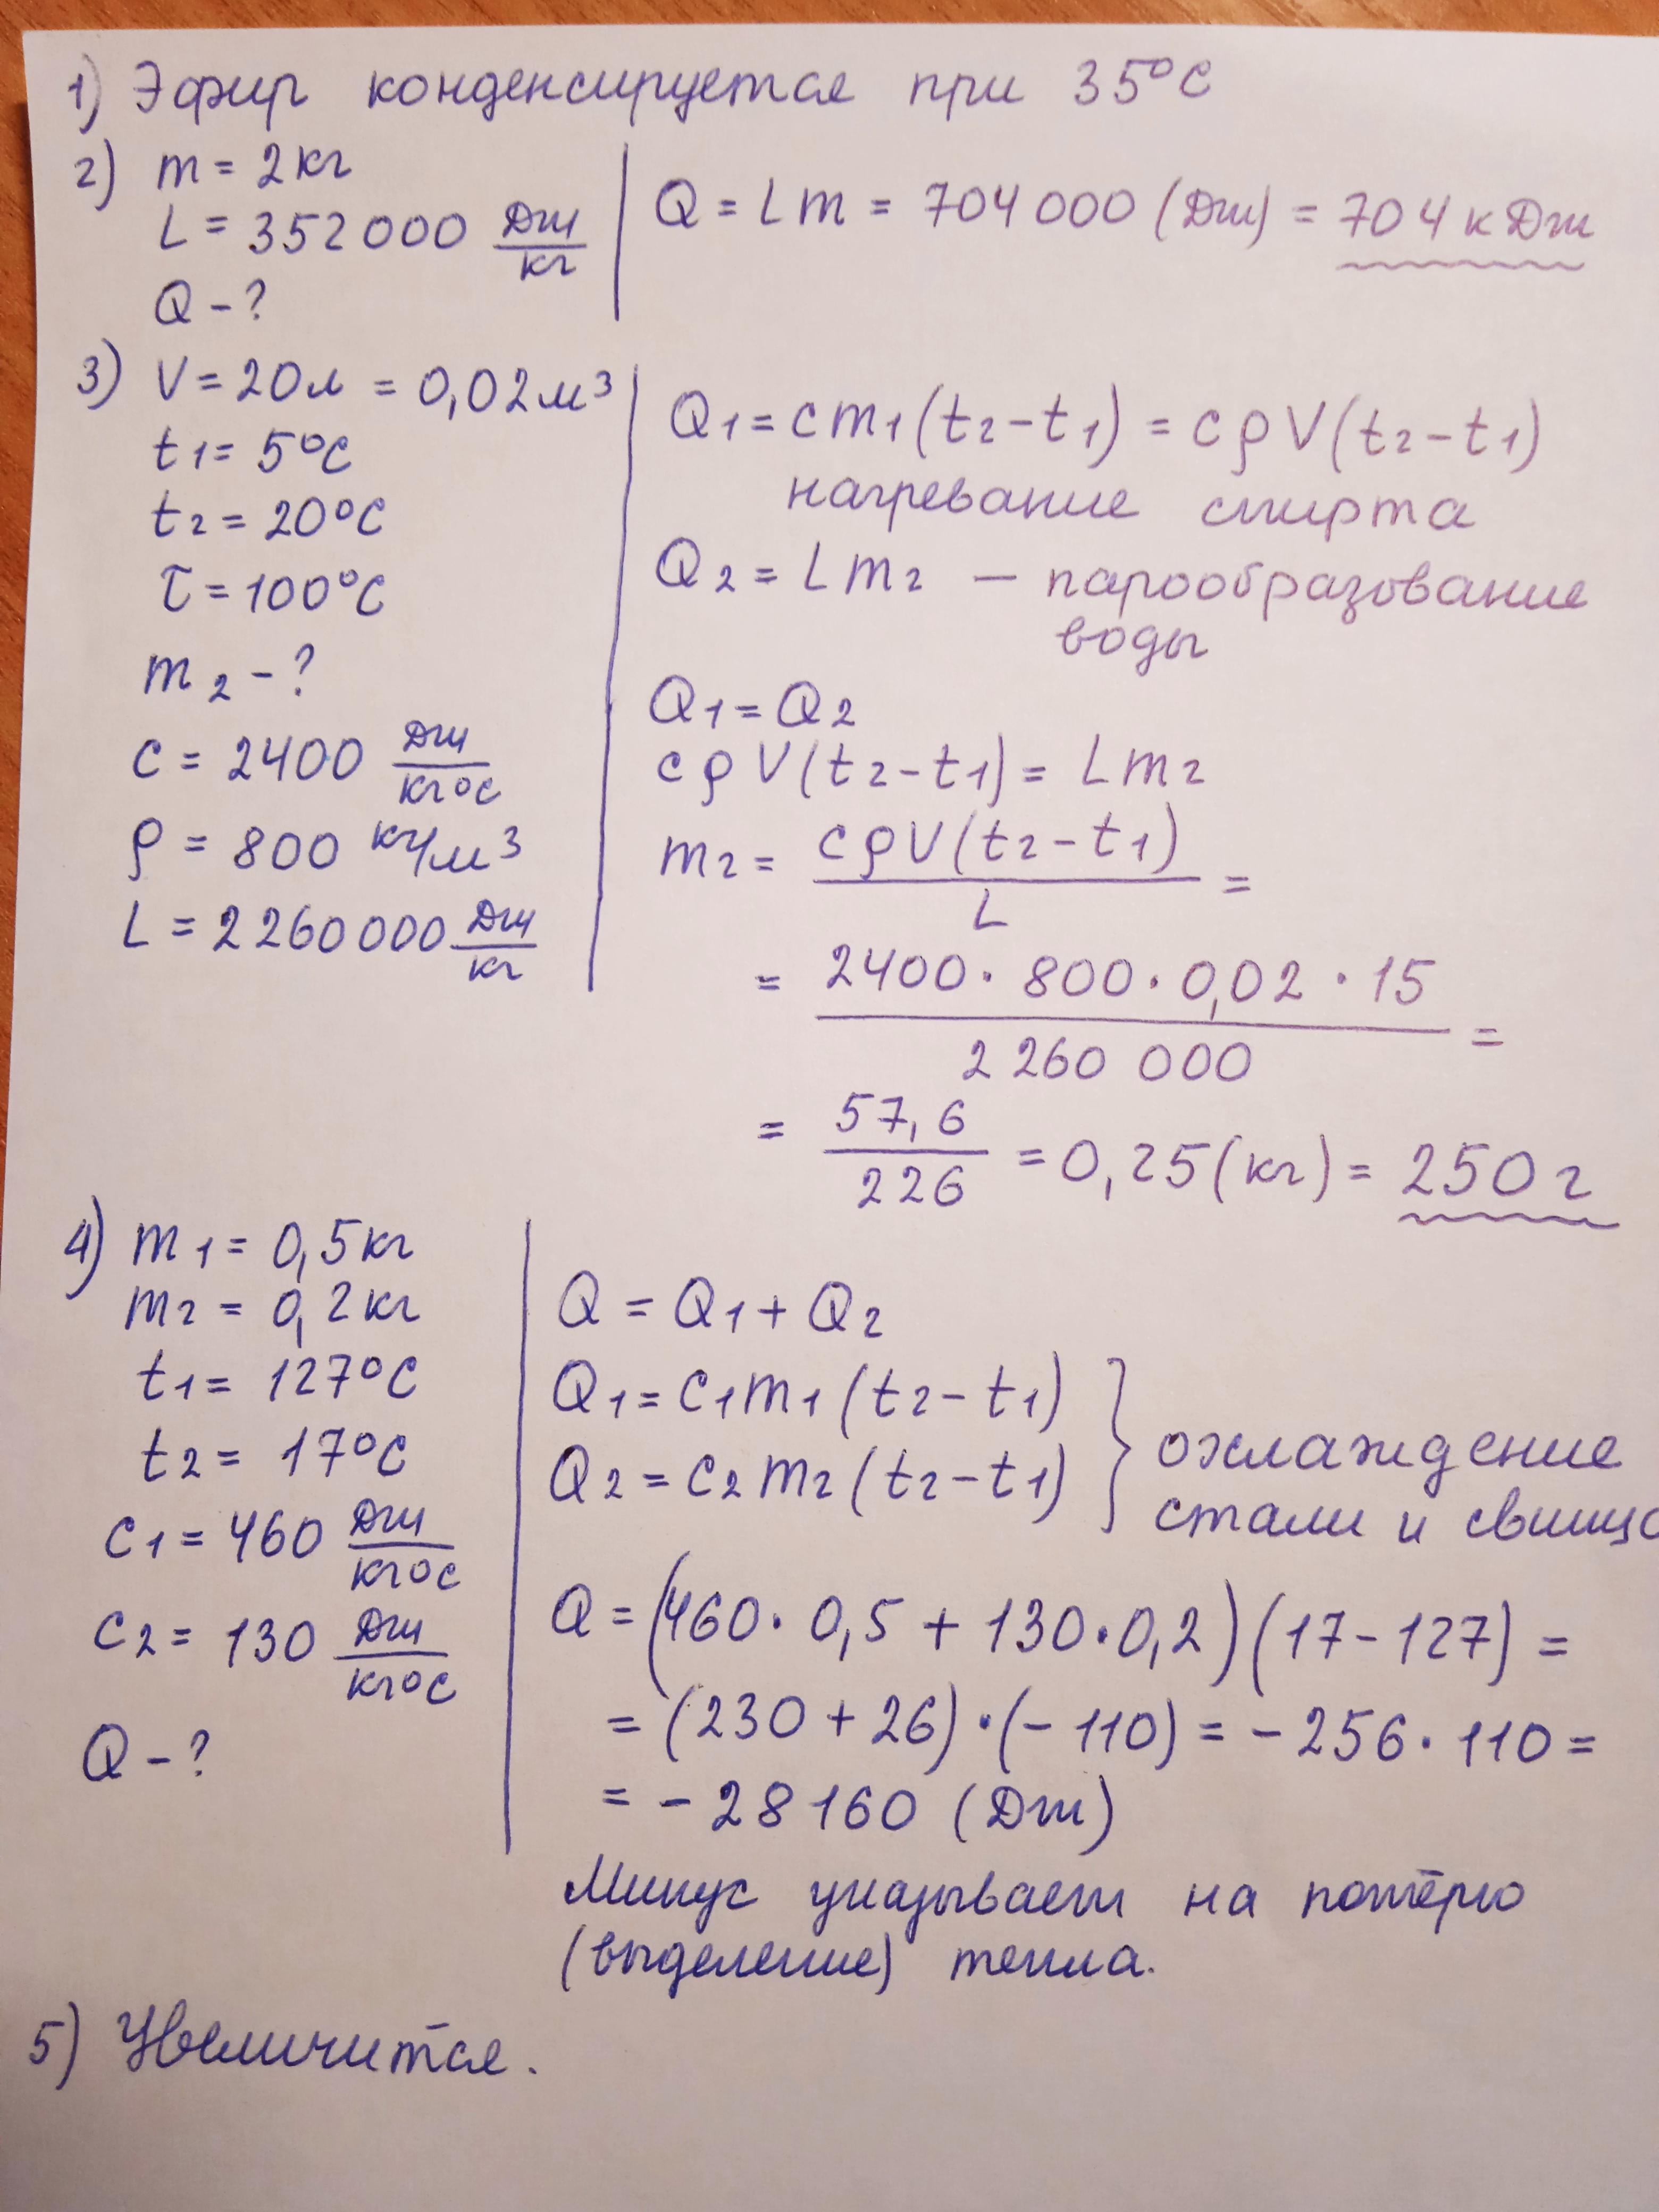 1) Эфир конденсируется при 35°C
2) m = 2кг
L = 352000 Дж/кг
Q - ?
Q = Lm = 704000 (Дж) = 704 кДж
3) V = 20л = 0,02м³
t1 = 5°C
t2 = 20°C
τ = 100°C
m2 - ?
c = 2400 Дж/кг°C
ρ = 800 кг/м³
L = 2260000 Дж/кг
Q1 = cm1(t2-t1) = cρV(t2-t1)
нагревание спирта
Q2 = Lm2 — парообразование
воды
Q1 = Q2
cρV(t2-t1) = Lm2
m2 = cρV(t2-t1)/L =
= 2400·800·0,02·15/2 260 000 =
= 57,6/226 = 0,25(кг) = 250г
4) m1 = 0,5кг
m2 = 0,2кг
t1 = 127°C
t2 = 17°C
c1 = 460 Дж/кг°C
c2 = 130 Дж/кг°C
Q - ?
Q = Q1 + Q2
Q1 = c1m1(t2-t1)
Q2 = c2m2(t2-t1)
} охлаждение
стали и свинца
Q = (460·0,5 + 130·0,2)(17-127) =
= (230 + 26)·(-110) = -256·110 =
= -28160 (Дж)
Минус указывает на потерю
(выделение) тепла.
5) Увеличится.